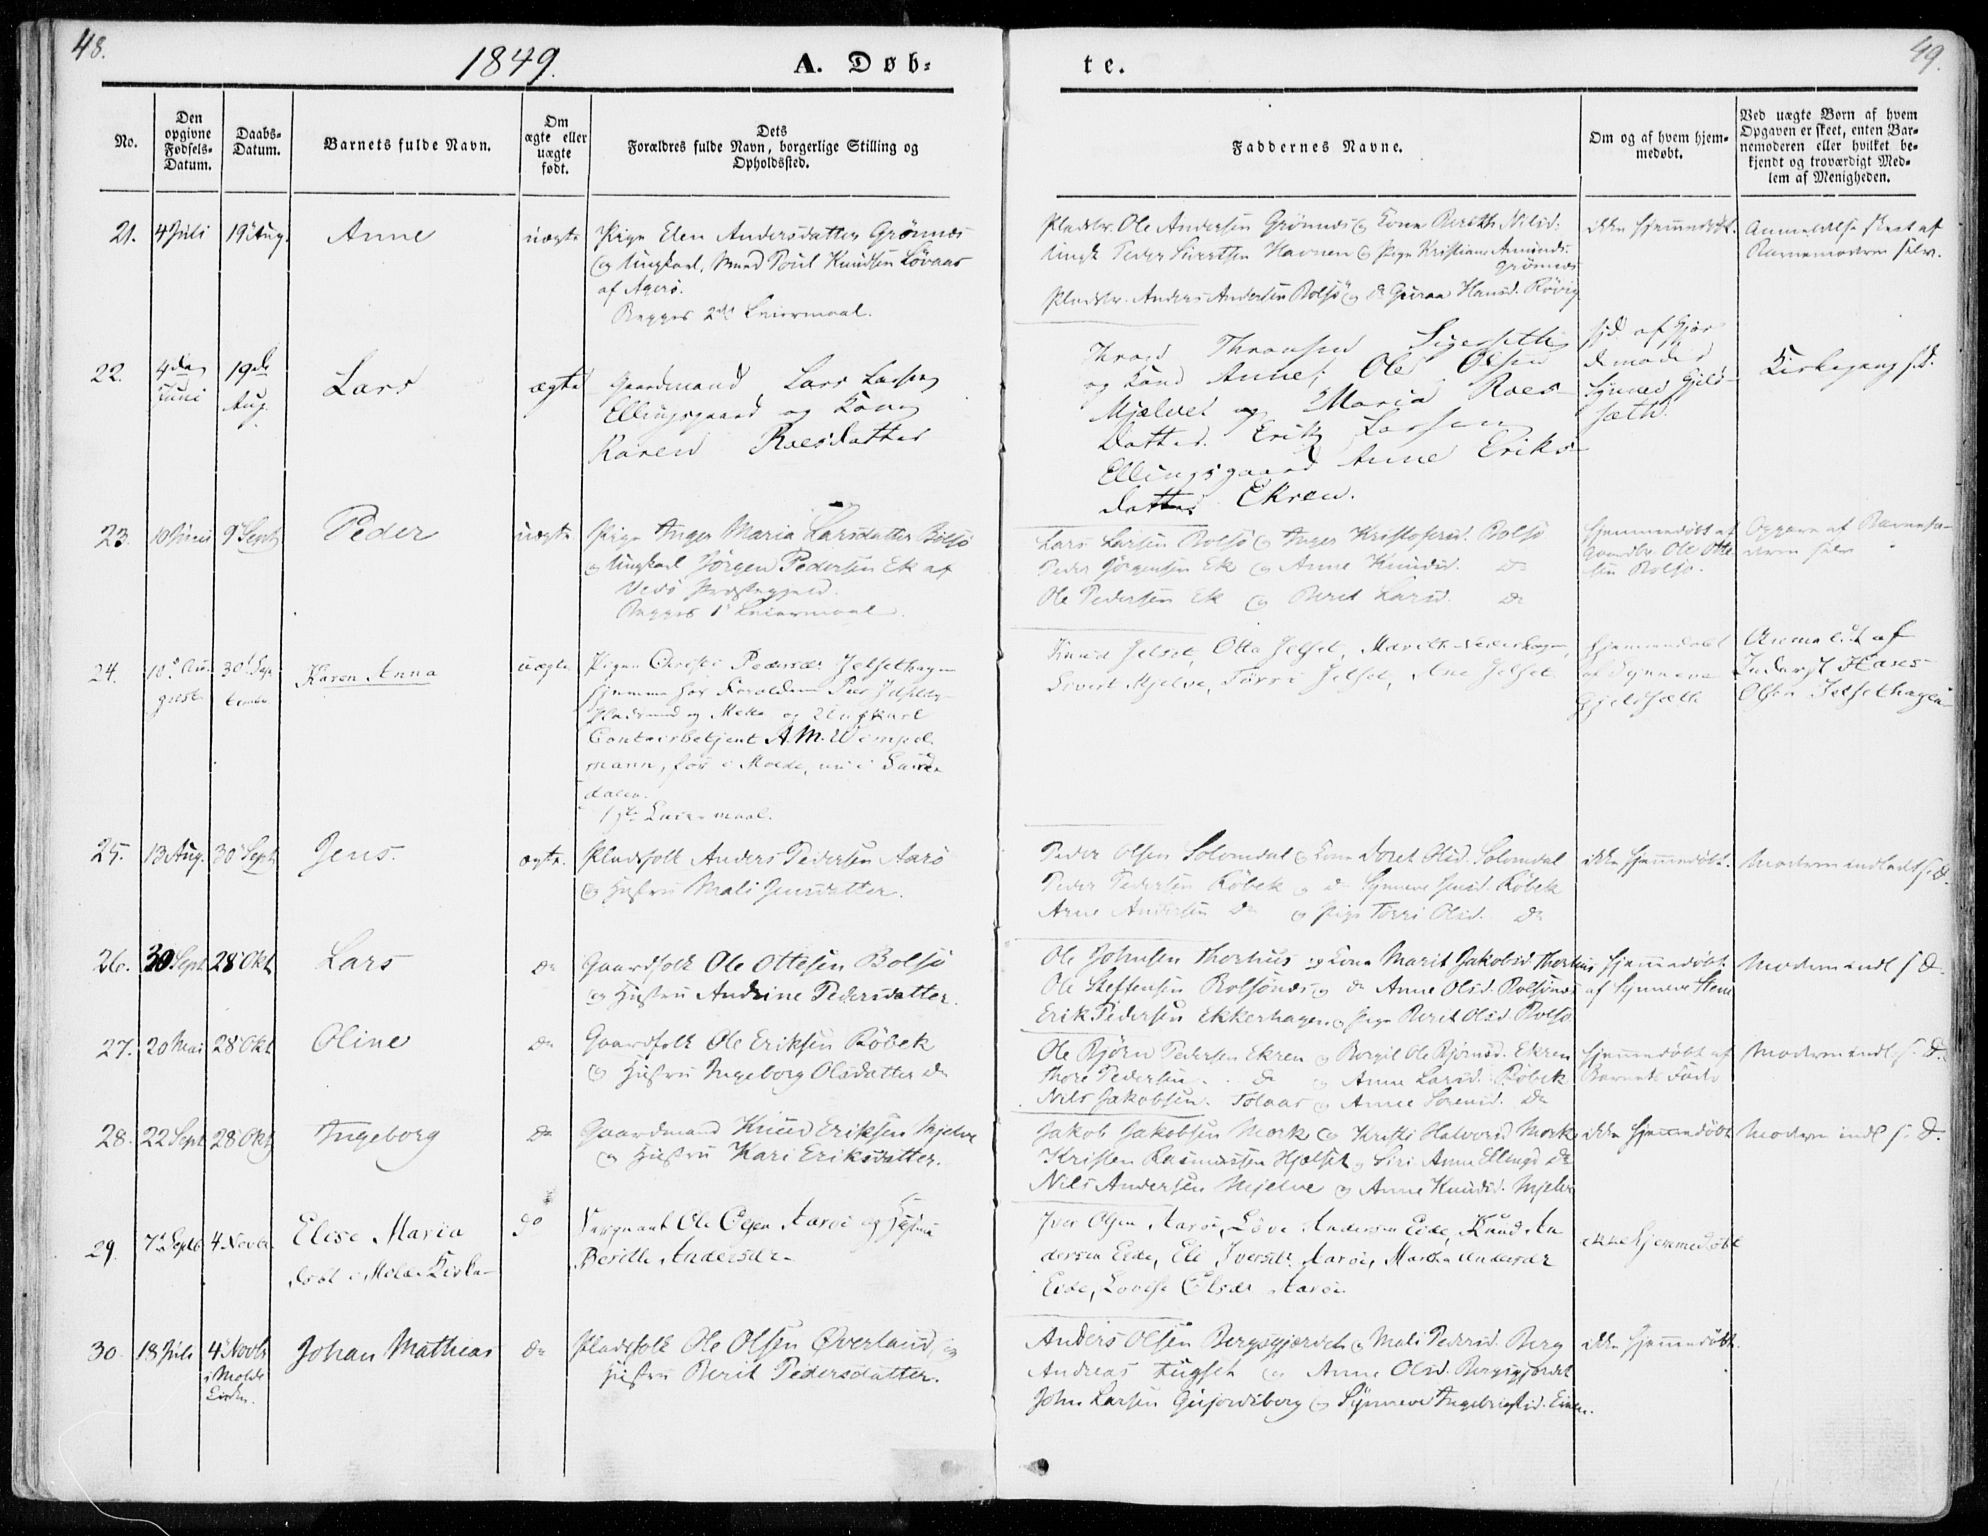 48.
1849.
A. Døb-
te.
49.
No.
Den opgivne Fødsels-Datum.
Daabs-Datum.
Barnets fulde Navn.
Om ægte eller uægte født.
Dets Forældres fulde Navn, borgerlige Stilling og Opholdssted.
Faddernes Navne.
Om og af hvem hjem-medøbt.
Ved uægte Børn af hvem Opgaven er skeet, enten Bar-nemoderen eller hvilket be-kjendt og troværdigt Med-lem af Menigheden.
21. 4 Juli 19 Aug. Anne uægte Pige Elen Andersdatter Grønnes
og Ungkarl, Poul Knudsen Løvaas
af Agerø.
Begges 2det Leiermaal.
Pladsbr. Ole Andersen Grønnes og Kone Bereth
Ungk Peder Havnen og Pige Kristiane
Grønnes
Pladsbr. Anders Andersen Bolsø og Guraa Hansd. Røvig
ikke hjemmedøbt.
Anmeldelse skeet af
Barnemoderen selv.
22. 4de Juni 19de Aug. Lars ægte Gaardmand Lars Larsen
Ellingsgaard og Kone
Karen Roesdatter
Thronsen
og Anne, Ole Olsen
Mjelvet og Maria Roes-
datter. Erik Larsen
Ellingsgaard Anne Eriks-
datter Ekren.
hjd. af Gjor
demoder
Synnev Gjels-
sæth.
Kirkegang s. D.
23. 10 Juni 9 Sept Peder uægte Pige Inger Maria Larsdatter Bolsø
og Ungkarl Jørgen Pedersen Ek af
Vedø Præstegjeld.
Begges 1 Leiermaal.
Lars Larsen Bolsø og Inger Kristofersd. Bolsø
Peder Jørgensen Ek og Anne Knudsd. Do
Ole Pedersen Ek og Berit Larsd. Do
hjemmedøbt af
Gaardbr. Ole Otte
sen Bolsø.
Opgave af Barnemo-
deren selv
24. 10de August 30 September Karen Anna uægte Pigen
hjemme hos Forældrene
og Ungkarl
Contoirbetjent A. M. Wimpel
mann, før i Molde, nu i
dalen.
1ste Leiermaal.
Knud Jelset, Otto Jelset,
Sivert Mjelve, Jelset, Ane Jelset
hjemmedøbt
af Synneve
Gjelssæth
Anmeldt af
Inderst Hans
Olsen Jelsethagen
25. 13 Aug. 30 Sept Jens. ægte. Pladsfolk Anders Pedersen Aarø
og Hustru Mali Jensdatter.
Peder Olsen Solomdal og Kone Doret Olsd. Solomdal
Peder Pedersen Røbek og Do Synneve Jensd. Røbek
Arne Andersen Do og Pige Olsd. Do
ikke hjemmedøbt.
Moderen indledt s. D.
26. 30 Sept 28 Okt Lars Do Gaardfolk Ole Ottesen Bolsø
og Hustru Andrine Pedersdatter.
Ole Johnsen Thorhus og Kone Marit Jakobsd. Thorhus
Ole Steffensen Bolsønes og Do Anne Olsd. Bolsønes
Erik Pedersen Ekkerhagen og Pige Berit Olsd. Bolsø
hjemmedøbt
af Synneve Stene
Moderen indl s. D.
27. 20 Mai 28 Okt Oline Do Gaardfolk Ole Eriksen Røbek
og Hustru Ingeborg Olsdatter Do
Ole Bjørn Pedersen Ekren og Borgil Ole Bjørnsd. Ekren
Thore Pedersen Do og Anne Larsd. Røbek
Nils Jakobsen Tolaas og Anne Sorensd. Do
hjemmedøbt af
Barnets Fader
Moderen indl. s. D.
28. 22 Sept 28 Okt Ingeborg Do Gaardmand Knud Eriksen Mjelve
og Hustru Kari Eriksdatter.
Jakob Jakobsen Mork og Kristi Halvorsd. Mork
Kristen Rasmussen Hjelset og Siri Anne Ellingsd Do
Nils Andersen Mjelve og Anne Knudsd. Mjelve
ikke hjemmedøbt
Moderen indl s. D.
29. 7de Septb 4 Novbr Elese Maria
døbt i Molde Kirke
do Sergeant Ole Olsen Aarøe og Hustru
Berithe Andersdr
Iver Olsen Aarøe, Andersen Eide, Knud An
dersen Eide, Eli Iversdr Aarøe, Martha Andersdr
Eide, Lovise Olsdr Aarøe
ikke hjemmedøbt
30. 18 Juli 4 Novbr i Molde Kirken. Johan Mathias Do Pladsfolk Ole Olsen Øverland og
Hustru Berit Pedersdatter.
Anders Olsen Bergsgjerdet og Mali Pedersd. Berg
Andreas og Anne Olsd. Bergsgjerdet
John Larsen Gujordsberg og Synneve
ikke hjemmedøbt.